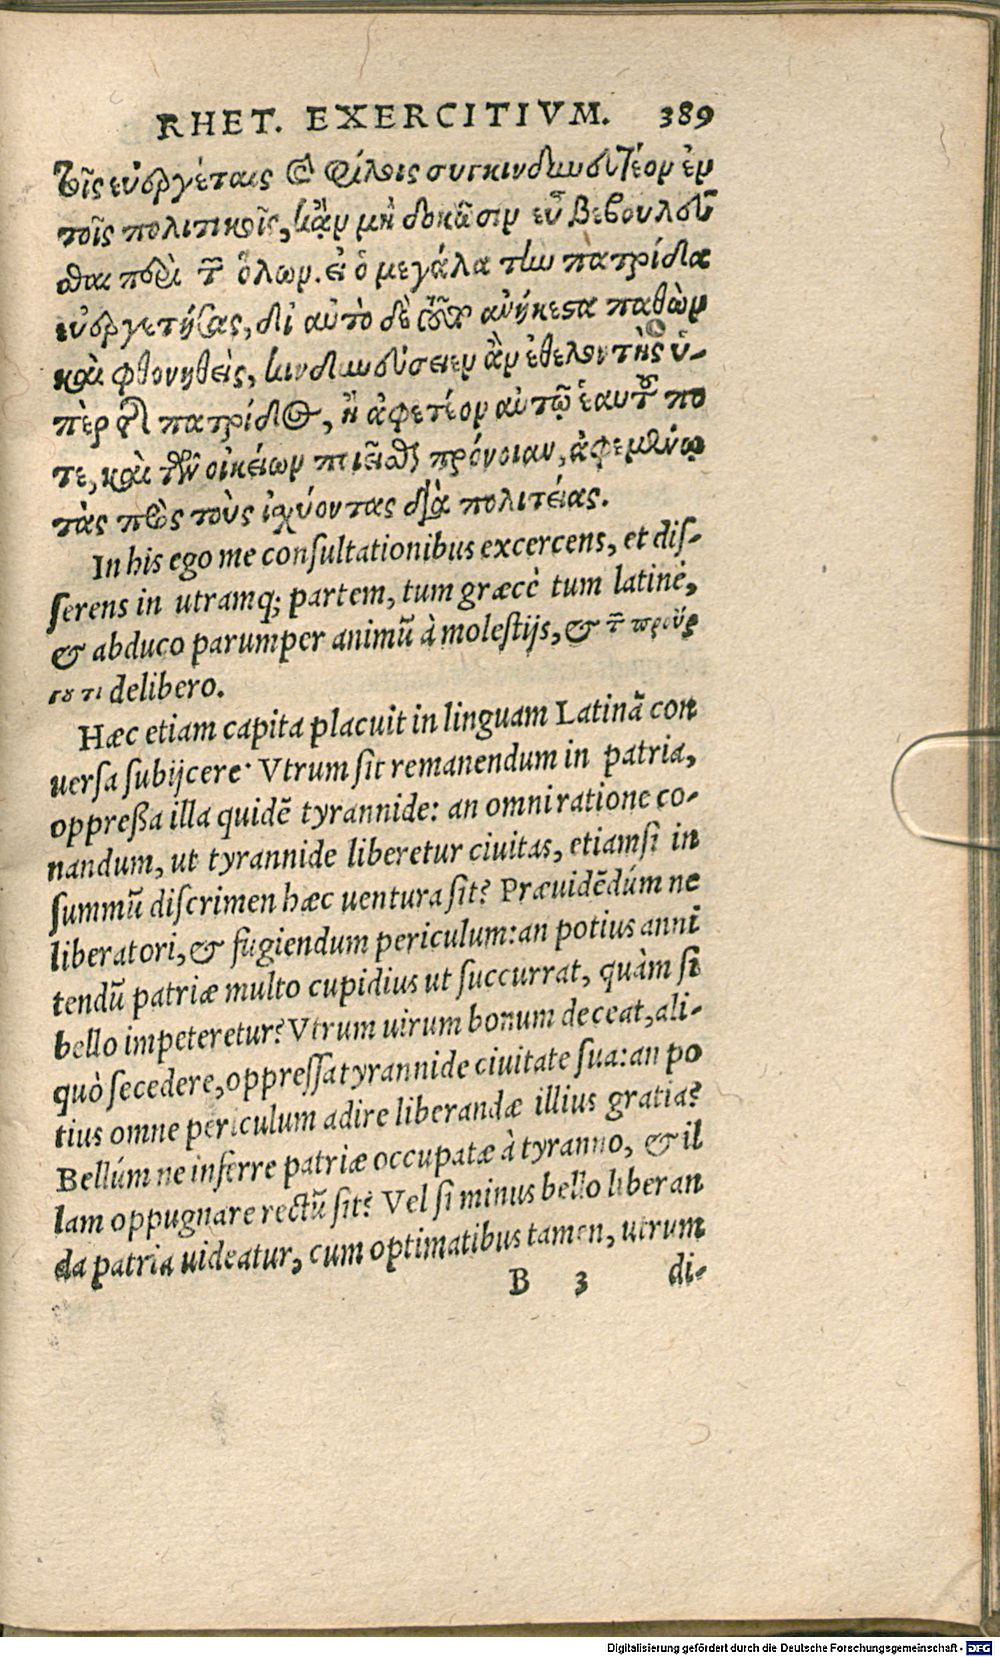 RHET. EXERCITIVM. 389
τοῖς εὐεργέταις καὶ φίλοις συγκινδυνευτέον ἐν
τοῖς πολιτικοῖς, κἂν μὴ δοκῶσιν εὖ βεβουλεῦ
σθαι περὶ τῶν ὅλων. εἰ ὁ μεγάλα τὴν πατρίδα
εὐεργετήσας, δι αὐτὸ δὲ τοῦτο ἀνήκεστα παθὼν
καὶ φθονηθεὶς, κινδυνεύσειεν ἂν ἐθελοντὴς ὑ-
πὲρ τῆς πατρίδος, ἢ ἀφετέον αὐτῷ ἑαυτοῦ πο
τε, καὶ τῶν οἰκείων ποιεῖσθαι πρόνοιαν, ἀφεμένῳ
τὰς πρὸς τοὺς ἰσχύοντας διὰ πολιτείας.
In his ego me consultationibus excercens, et dis-
serens in utramq; partem, tum græcè tum latinè,
& abduco parumper animũ à molestijs, & τ͂ προὔρ
γου τι delibero.
Hæc etiam capita placuit in linguam Latinã con
uersa subijcere. Vtrum sit remanendum in patria,
oppressa illa quidẽ tyrannide: an omni ratione co-
nandum, ut tyrannide liberetur ciuitas, etiamsi in
summũ discrimen hæc uentura sit? Præuidẽdúm ne
liberatori, & fugiendum periculum: an potius anni
tendũ patriæ multo cupidius ut succurrat, quàm si
bello impeteretur? Vtrum uirum bonum deceat, ali-
quò secedere, oppressa tyrannide ciuitate sua: an po
tius omne periculum adire liberandæ illius gratia?
Bellúm ne inferre patriæ occupatæ à tyranno, & il
lam oppugnare rectũ sit? Vel si minus bello liberan
da patria uideatur, cum optimatibus tamen, utrum
B 3 di-
Digitalisierung gefördert durch die Deutsche Forschungsgemeinschaft - DFG